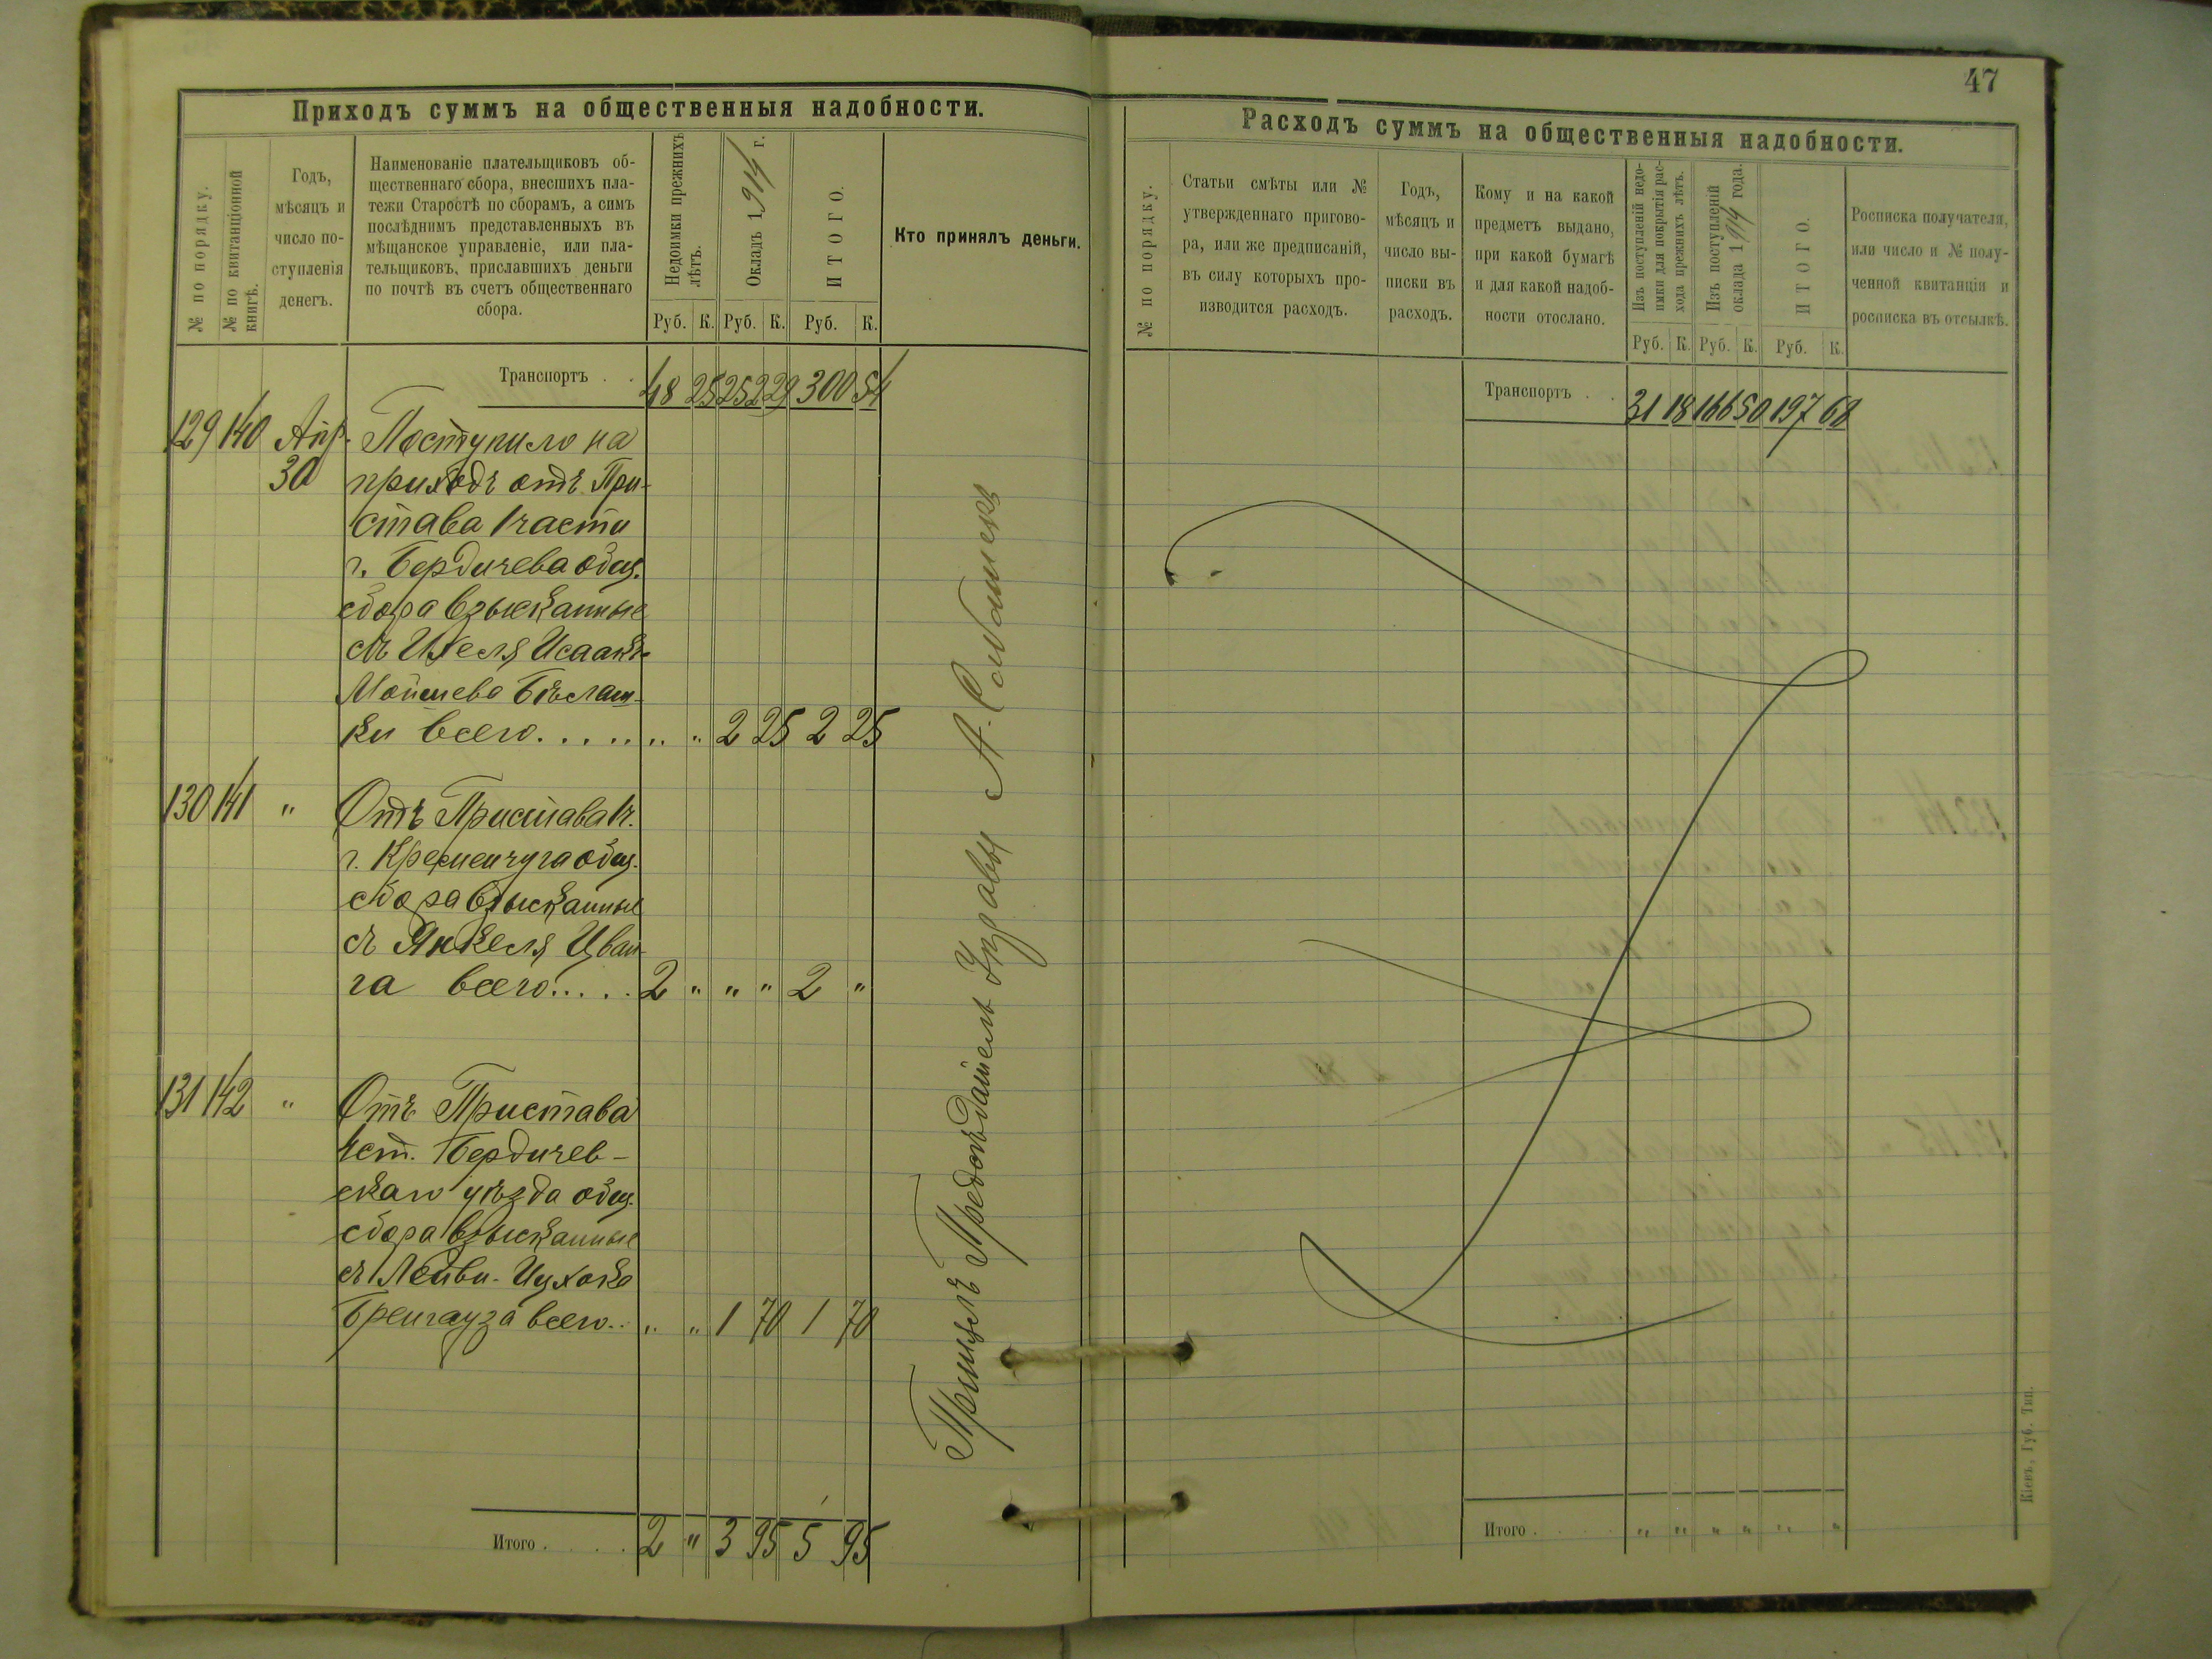 47
Приходъ суммъ на общественныя надобности.
№ по порядку.
№ по квитанціонной
книгѣ.
Годъ,
мѣсяцъ и
число по-
ступленія
денегъ.
Наименованіе плательщиковъ об-
щественнаго сбора, внесшихъ пла-
тежи Старостѣ по сборамъ, а симъ
послѣднимъ представленныхъ въ
мѣщанское управленіе, или пла-
тельщиковъ, приславшихъ деньги
по почтѣ въ счетъ общественнаго
сбора.
Недоимки прежнихъ
лѣтъ.
Окладъ 1914 г.
ИТОГО.
Кто принялъ деньги.
Руб. К. Руб. К. Руб. К.
Транспортъ . . 48 25 252 29 300 54
129 140 Апр. Поступило на
30 приходъ отъ При-
става 1 части
г. Бердичева общ.
сбора взысканные
съ Исаака-
Мойшева
ки всего. . . . . „ „ 2 25 2 25
130 141 „ Отъ Пристава 1 ч.
г. Кременчуга общ.
сбора взысканные
съ Янкеля Цван-
га всего. . . . . 2 „ „ „ 2 „
131 142 „ Отъ Пристава
1 ст. Бердичев-
скаго уѣзда общ.
сбора взысканные
съ Лейви-Ицхока
Бренгауза всего.. „ „ 1 70 1 70
Итого . . . . 2 „ 3 95 5 95
Принялъ Предсѣдатель Управы А.
Расходъ суммъ на общественныя надобности.
№ по порядку.
Статьи смѣты или №
утвержденнаго пригово-
ра, или же предписаній,
въ силу которыхъ про-
изводится расходъ.
Годъ,
мѣсяцъ и
число вы-
писки въ
расходъ.
Кому и на какой
предметъ выдано,
при какой бумагѣ
и для какой надоб-
ности отослано.
Изъ поступленій недо-
имки для покрытія рас-
хода прежнихъ лѣтъ.
Изъ поступленій
оклада 1914 года.
ИТОГО.
Росписка получателя,
или число и № полу-
ченной квитанціи и
росписка въ отсылкѣ.
Руб. К. Руб. К. Руб. К.
Транспортъ . . 31 18 166 50 197 68
Итого . . . . „ „ „ „ „ „
Кіевъ, Губ. Тип.